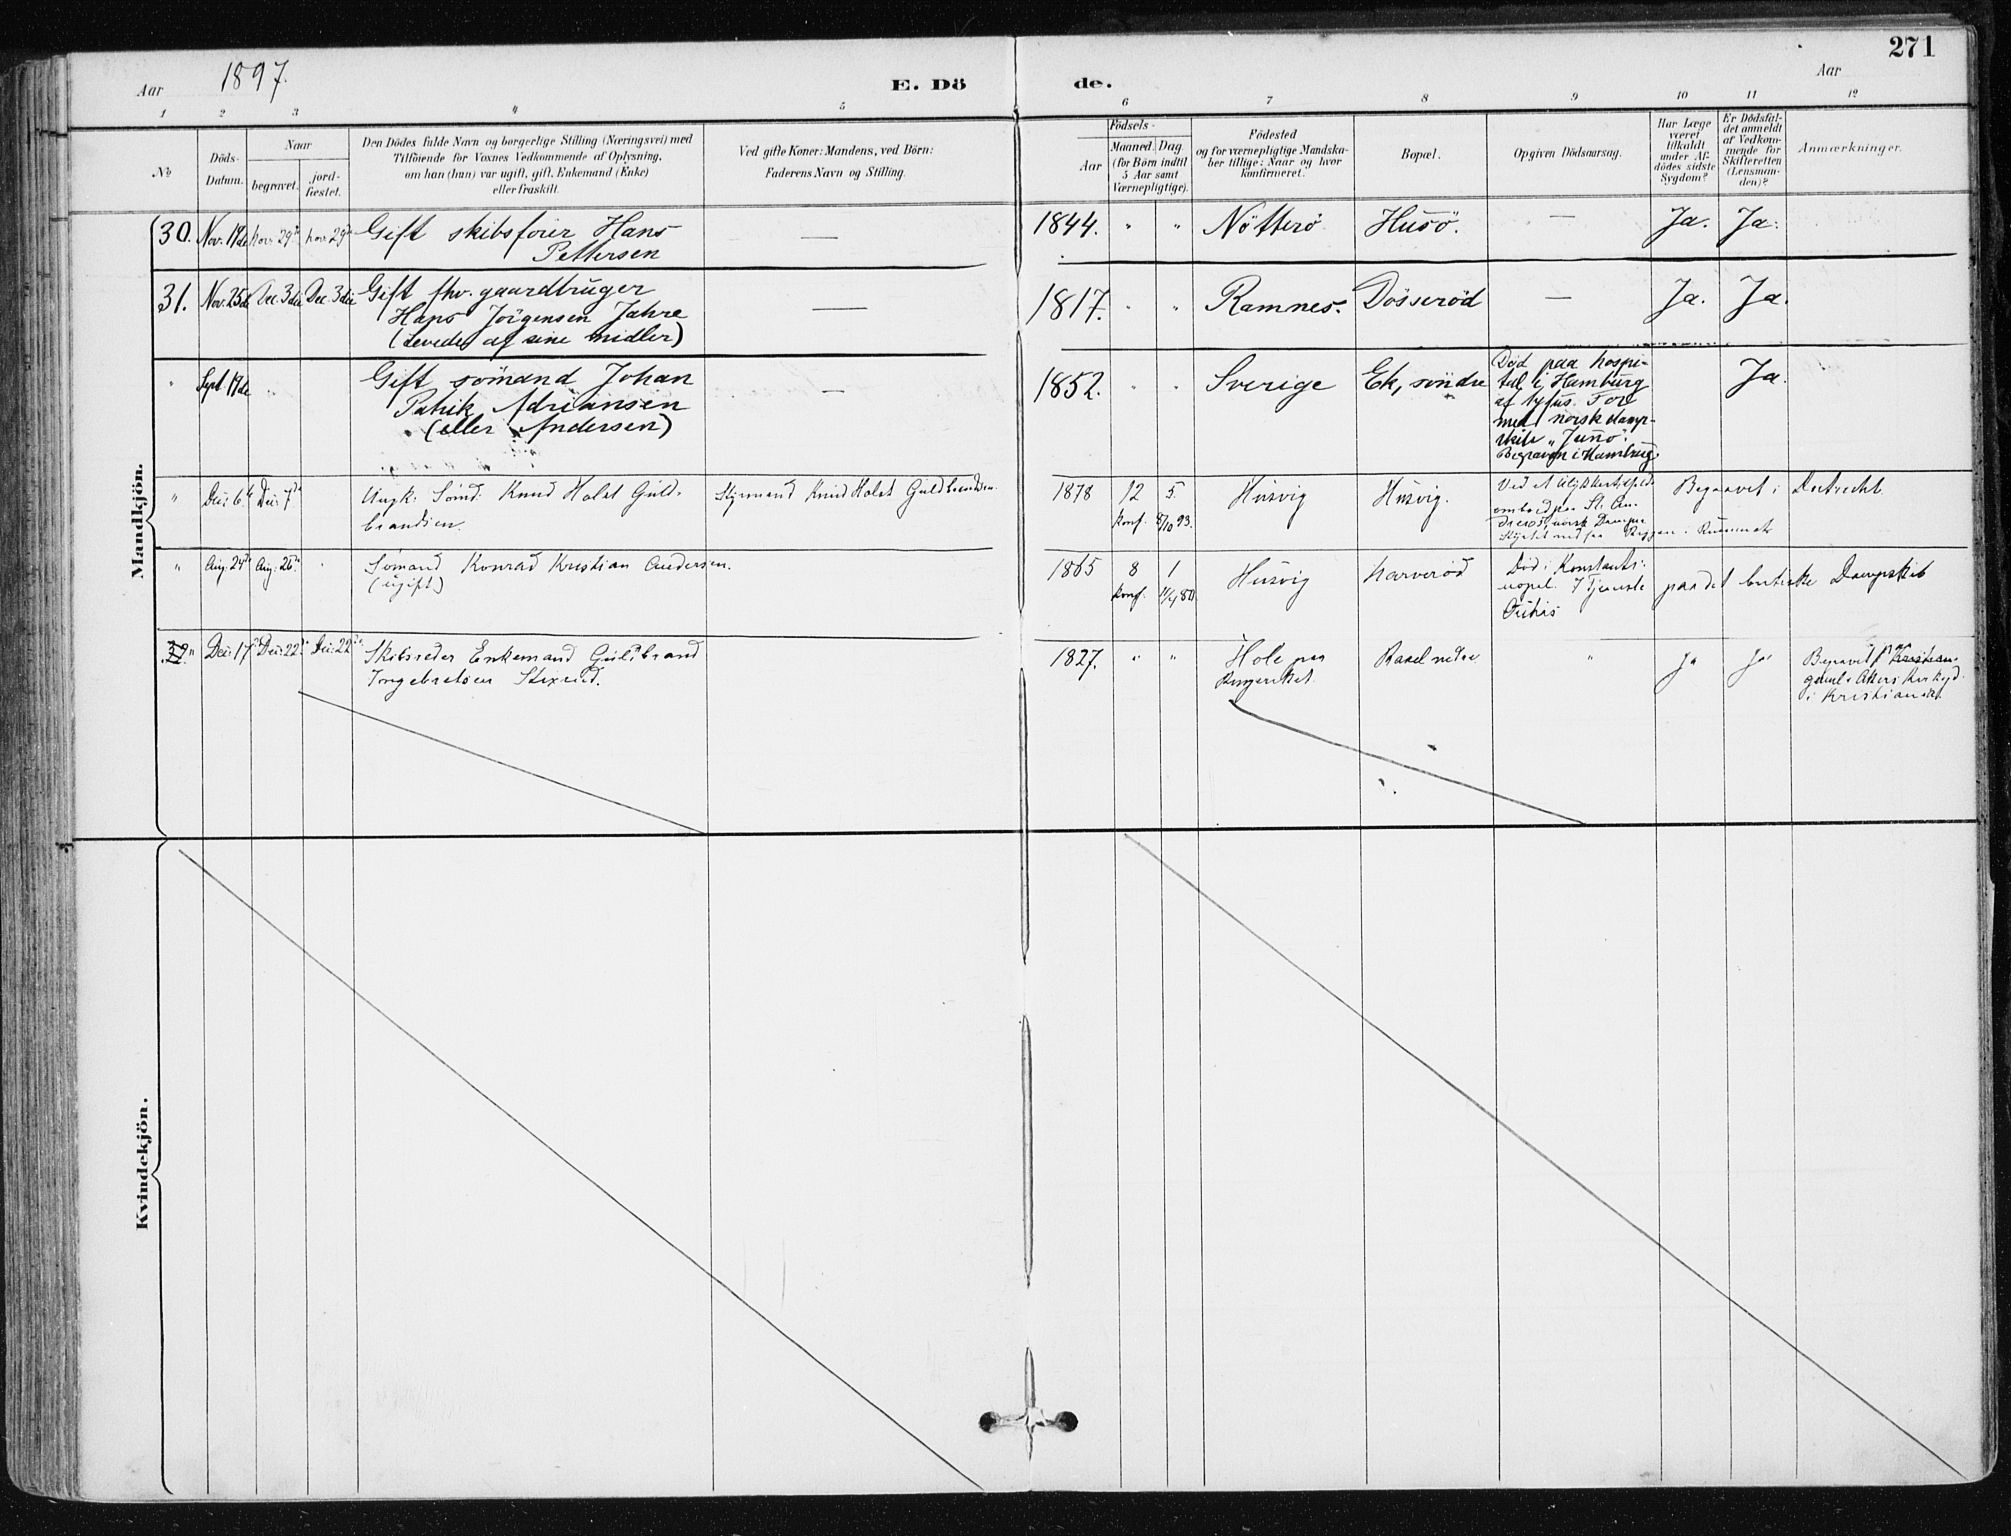 271
Aar 1897.
E. Dö de.
Aar
1 2 3 4 5 6 7 8 9 10 11 12
No
Döds-
Datum.
Naar
begravet.
jord-
fæstet.
Den Dödes fulde Navn og borgerlige Stilling (Næringsvei) med
Tilföiende for Voxnes Vedkommende af Oplysning,
om han (hun) var ugift, gift, Enkemand (Enke)
eller fraskilt.
Ved gifte Koner: Mandens, ved Börn:
Faderens Navn og Stilling.
Födsels-
Aar
Maaned. Dag.
(for Börn indtil
5 Aar samt
Værnepligtige).
Födested
og for værnepligtige Mandska-
ber tillige: Naar og hvor
konfirmeret.
Bopæl.
Opgiven Dödsaarsag.
Har Læge
været
tilkaldt
under Af-
dödes sidste
Sygdom?
Er Dödsfal-
det anmeldt
af Vedkom-
mende for
Skifteretten
(Lensman-
den)?
Anmærkninger.
Mandkjön.
30. Nov. 19de Nov. 29de Nov. 29de Gift skibsförer Hans
Pettersen
— 1844. " " Nötterö Husö. — Ja. Ja.
31. Nov. 25de Dec. 3die Dec. 3die Gift fhv. gaardbruger
Hans Jörgensen Jahre
(Levede af sine midler)
— 1817. " " Ramnes. Dösseröd — Ja. Ja.
" Sept. 19de " Gift sömand Johan
Patrik Adriansen
(eller Andersen)
— 1852. " " Sverige Ek, söndre
Död paa hospi-
tal i Hamburg
af tyfus. For
med norsk damp-
skib "Juno".
Begraven i Hamburg.
Ja.
" Dec: 6te Dec: 7de Ungk: Sömd: Knud Holst Guld-
brandsen.
Styrmand Knud Holst Guldbrandsen.
1878 12 5.
Konf. 8/10 93.
Husvig Husvig.
Ved et Ulykkestilfælde
ombord paa St. An-
dreas, norsk Damper
Begravet i Dortrecht
" Aug: 24de Aug: 26de " Sömand Konrad Kristian Andersen.
(ugift)
1865 8 1
Konf.
Husvig Harveröd
Död i Konstanti-
nopel. I Tjeneste paa det britiske Dampskib
32. " Dec: 17de Dec: 22de Dec: 22de Skibsreder Enkemand Guldbrand
Ingebretsen Stixrud.
1827. " " Hole paa
Ringeriket. Basel nedre " Ja Ja
Begravet paa Kristian-
gamle Akers Kirkegd.
i Kristiania
Kvindekjön.